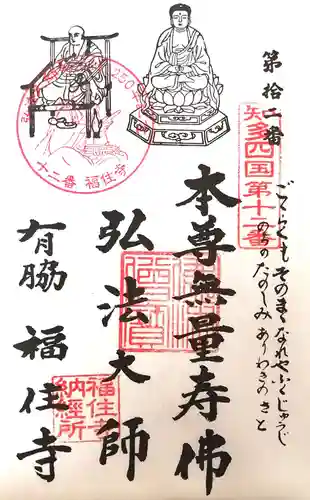 第拾二番
知多四国第十二番
ごくらくも そのまゝなれや ふくじゅうじ
のちのたのしみ ありわきのさと
本尊無量寿佛
弘法大師
有脇 福住寺
十二番 福住寺
福住寺
納経所